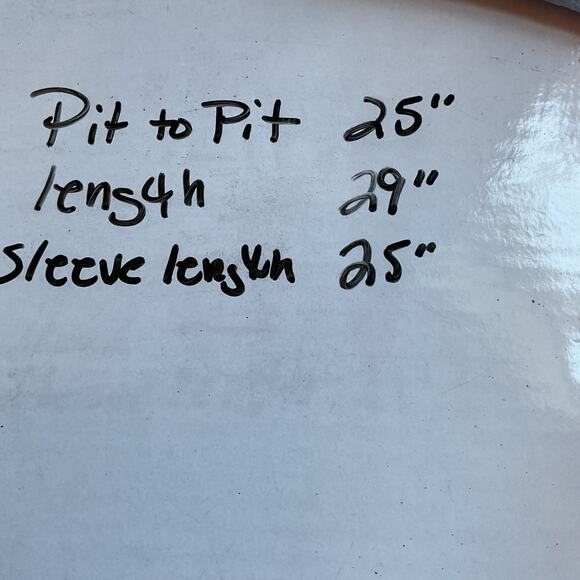 Pit to Pit 25"
length 29"
Sleeve length 25"